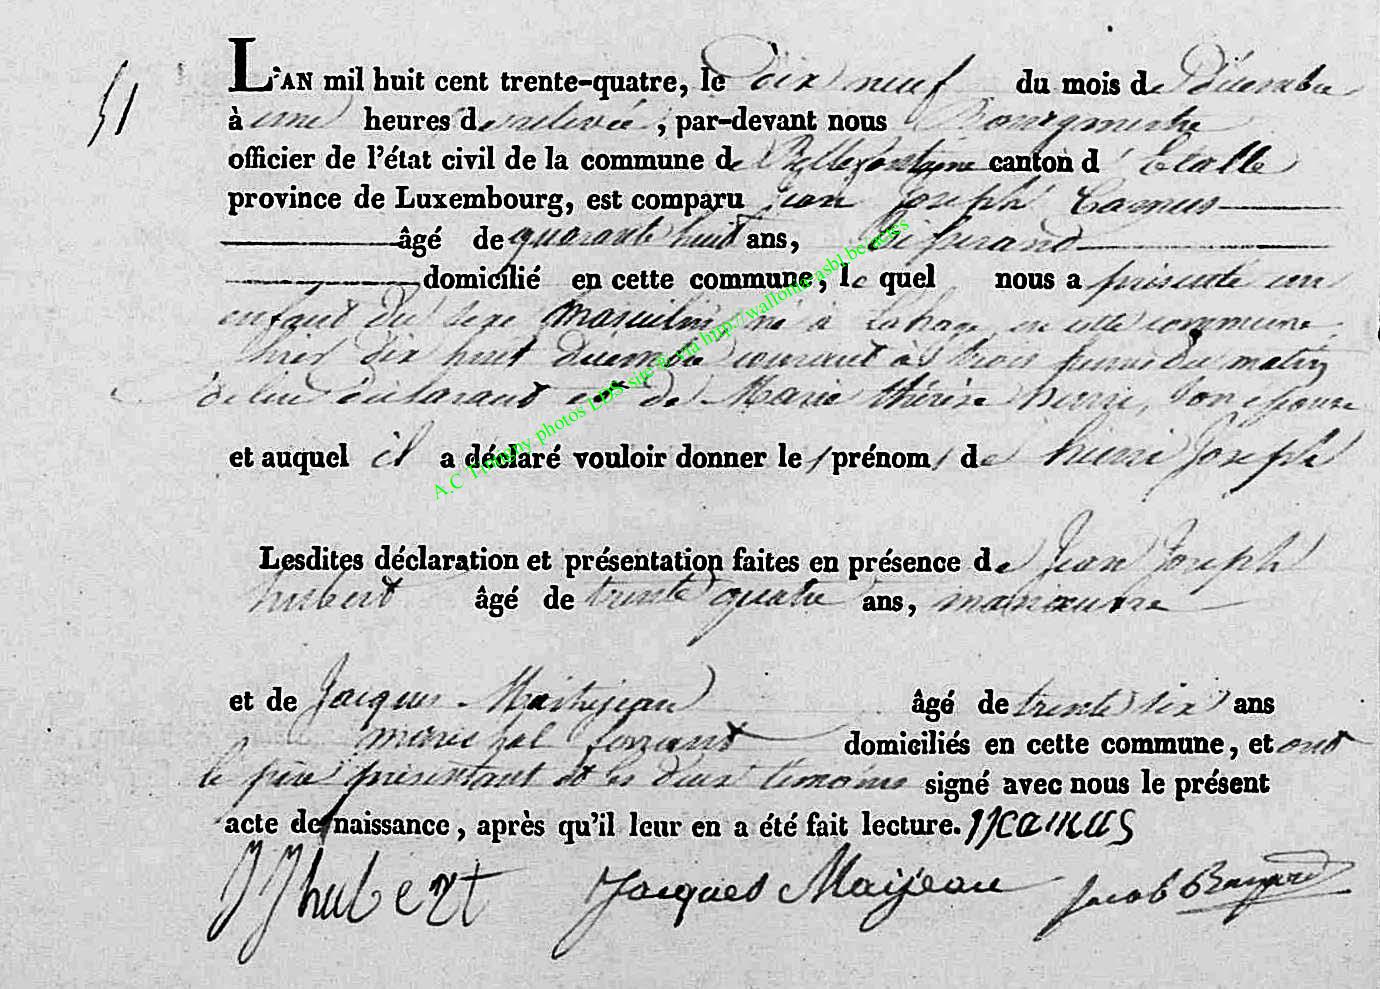 51
L'AN mil huit cent trente-quatre, le Dix neuf du mois de Décembre
à une heures de relevée, par-devant nous Bourgmestre
officier de l'état civil de la commune de Bellefontaine canton d'Etalle
province de Luxembourg, est comparu Jean Joseph Camus
âgé de quarante huit ans,
domicilié en cette commune, lequel nous a présenté un
enfant du sexe masculin né à Lahage en cette commune
hier dix huit décembre courant à trois heures du matin
de lui déclarant et de Marie thérèse henri, son épouse
et auquel il a déclaré vouloir donner le prénom de henri Joseph
Lesdites déclaration et présentation faites en présence de Jean Joseph
hubert âgé de trente quatre ans, manœuvre
et de Jacques Maitrejean âgé de trente six ans
maréchal ferrant domiciliés en cette commune, et ont
le père présentant et les deux témoins signé avec nous le présent
acte de naissance, après qu'il leur en a été fait lecture. JJCamus
JJhubert Jacques Maijean Jacob
A.C Tintigny photos LDS site & via http://wallonia-asbl.be/actes